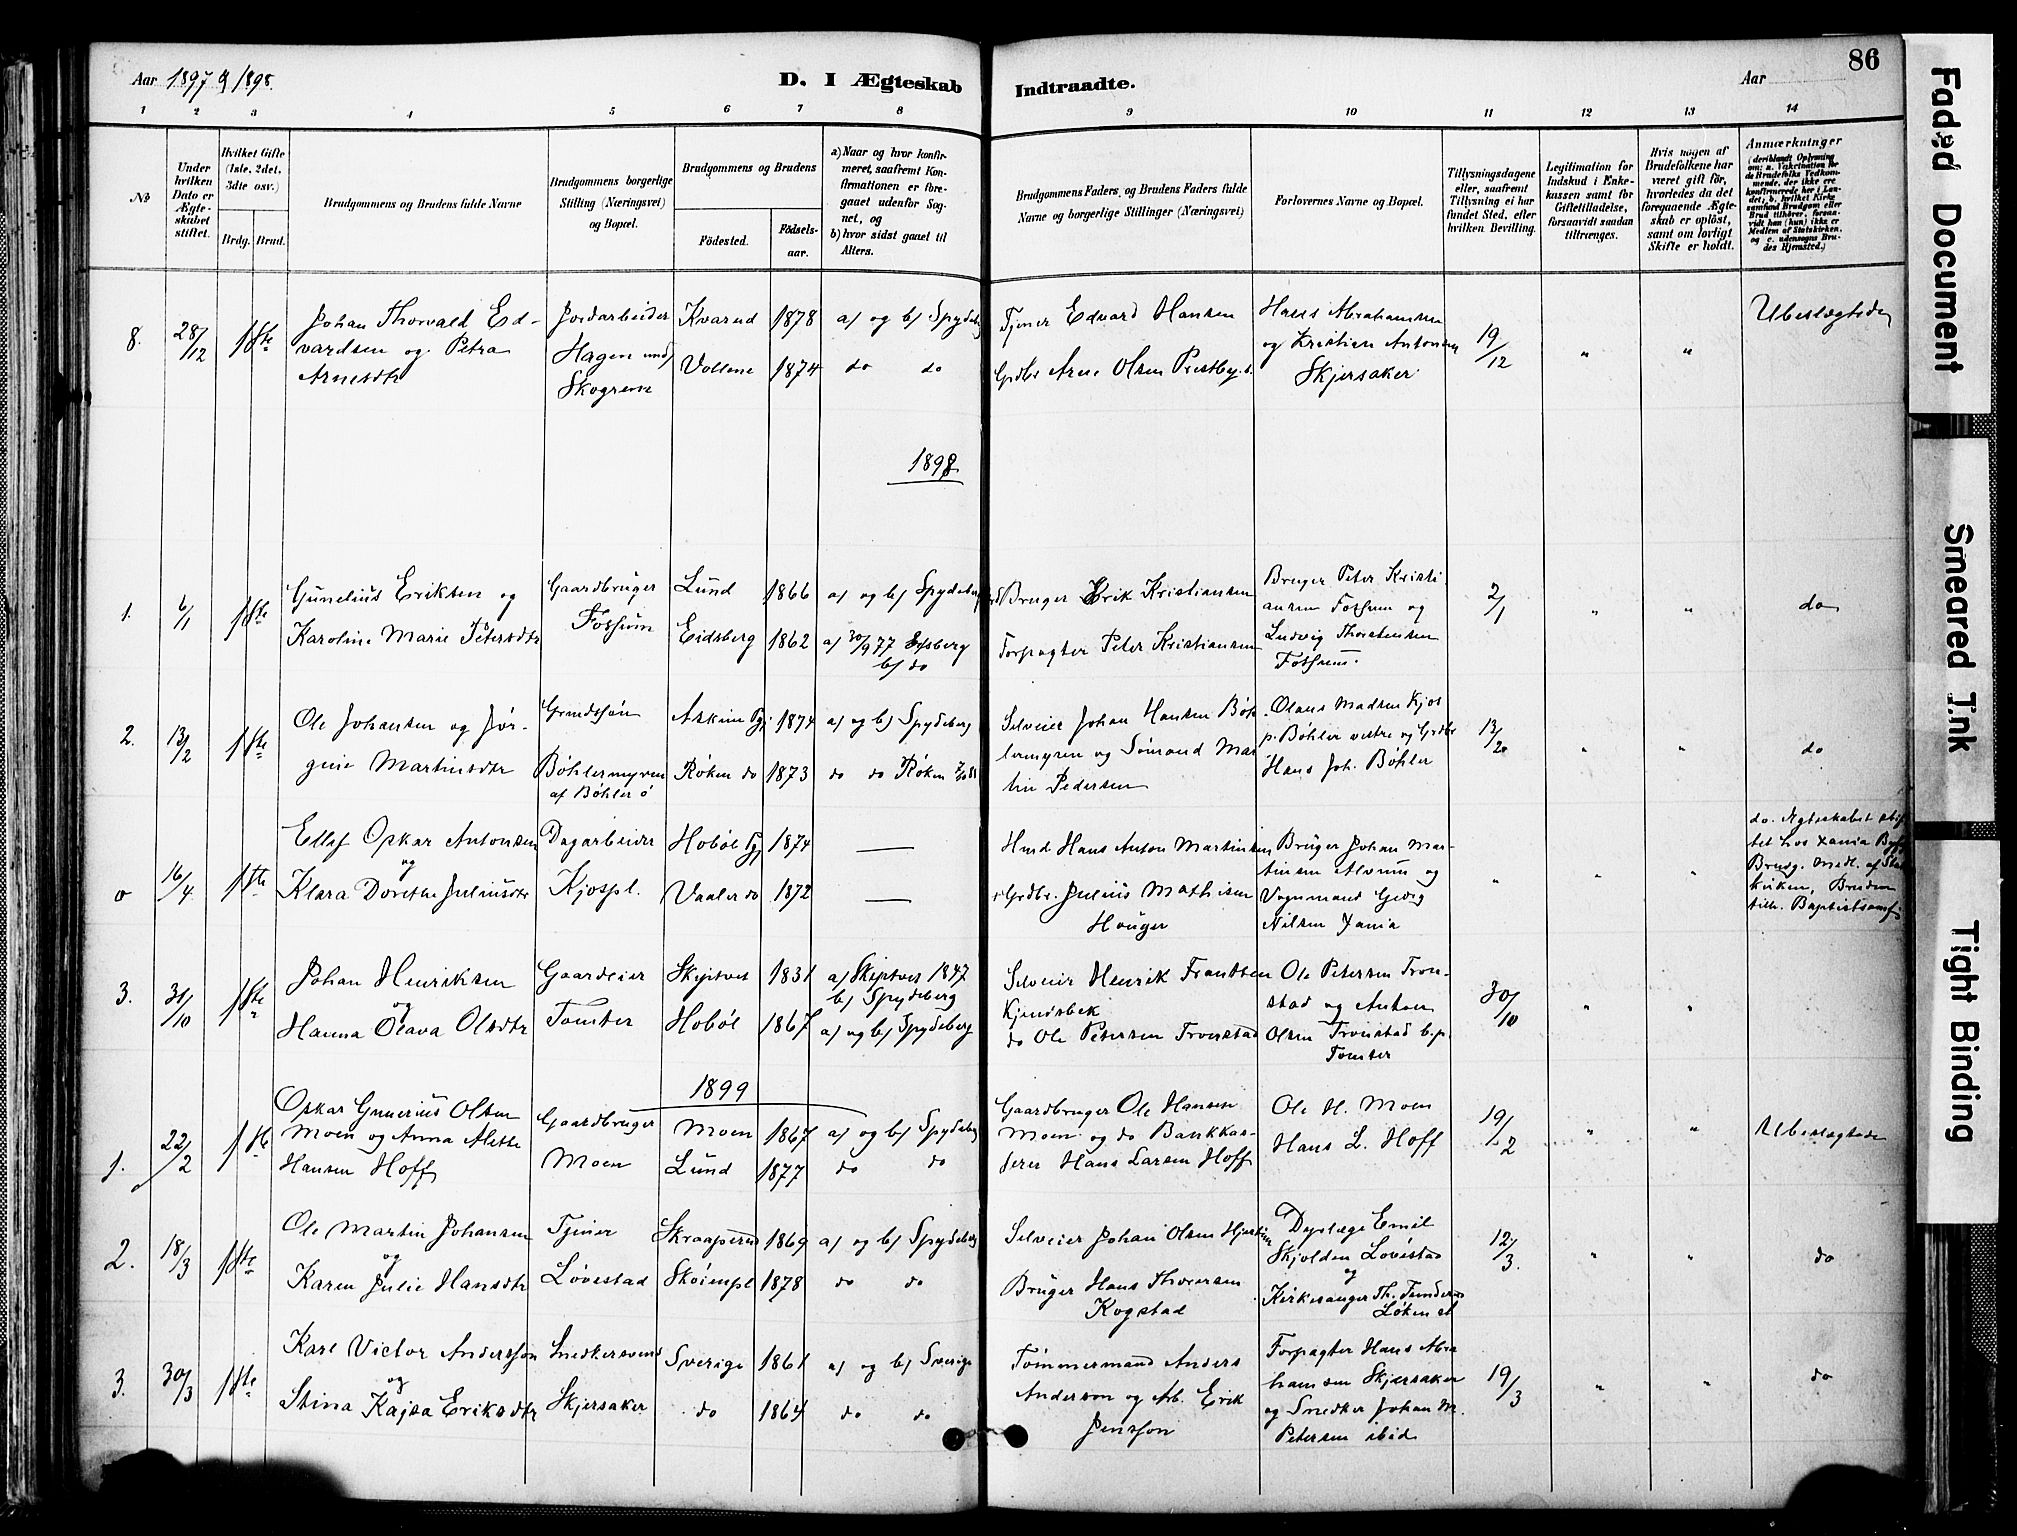 Aar 1897 & 1898.
D. I Ægteskab Indtraadte.
Aar
86
1 2 3 4 5 6 7 8 9 10 11 12 13 14
№
Under hvilken Dato er Ægteskabet stiftet.
Hvilket Gifte (1ste, 2det, 3dte osv.)
Brdg. Brud.
Brudgommens og Brudens fulde Navne
Brudgommens borgerlige Stilling (Næringsvei) og Bopæl.
Brudgommens og Brudens
Födested.
Födselsaar.
a) Naar og hvor konfirmeret, saafremt Konfirmationen er foregaaet udenfor Sognet, og
b) hvor sidst gaaet til Alters.
Brudgommens Faders, og Brudens Faders fulde Navne og borgerlige Stillinger (Næringsvei)
Forlovernes Navne og Bopæl.
Tillysningsdagene eller, saafremt Tillysning ei har fundet Sted, efter hvilken Bevilling.
Legitimation for Indskud i Enkekassen samt for Giftetilladelse, forsaavidt saadan tiltrænges.
Hvis nogen af Brudefolkene har været gift før, hvorledes da det foregaaende Ægteskab er oplöst, samt om lovligt Skifte er holdt.
Anmærkninger
(deriblandt Oplysning om: a. Vakcination for de Brudefolks Vedkommende, der ikke ere konfirmerede her i Landet; b. hvilket Kirkesamfund Brudgom eller Brud tilhører, forsaavidt han (hun) ikke er Medlem af Statskirken, og c. udensogns Brudes Hjemsted.)
8. 28/12 1ste Johan Thorvald Edvardsen og Petra Arnesdtr
Jordarbeider Hagen und/ Skogrem
Kvarud 1878 a/ og b/ Spydeberg
Vollene 1874 do do
Tjener Edvard Hansen
Grdbr Arne Olsen Prestby.
Hans Abrahamsen og Kristian Antonsen Skjersaker
19/12 " " Ubeslægtede
1898
1. 6/1 1ste Gunelius Eriksen og
Karoline Marie Petersdtr
Gaardbruger Fossum
Lund 1866 a/ og b/ Spydeberg
Eidsberg 1862 a/ 30/9 77 Edsberg b/ do
Bruger Erik Kristiansen
Forpagter Peter Kristiansen
Bruger Peter Kristiansen Fossum og Ludvig Thorstensen Fossum.
2/1 " " do
2. 13/2 1ste Ole Johansen og Jørgine Martinsdtr
Grundsøn Bøhlermyren af Bøhler ø
Askim Pgj 1874 a/ og b/ Spydeberg
Røken do 1873 do do Røken
Selveier Johan Hansen Bøhlermyren og Sømand Martin Pedersen
Olaus Madsen Kjos p. Bøhler vestre og Grdbr Hans Joh. Bøhler
13/2 " " do
0 16/4 1ste Ellef Oskar Antonsen
og
Klara Dorethe Juliusdtr
Dagarbeider Kjospl.
Hobøl Pgj 1874 —
Vaaler do 1872 —
Hmd Hans Anton Martinsen
Grdbr. Julius Mathisen Houger
Bruger Johan Martinsen Alvim og Vognmand Georg Nilsen Xania
" " "
do. Ægteskabet stiftet hos Xania Byf. Brudg. Medl. af Statskirken, Bruden tilh. Baptistsamf.
3. 31/10 1ste Johan Henriksen
og
Hanna Olava Olsdtr
Gaardeier Tomter
Skiptvet 1831 a/ Skiptvet 1847 b/ Spydeberg
Hobøl 1867 a/ og b/ Spydeberg
Selveier Henrik Frantsen Kjendsbek
do Ole Petersen Tronstad
Ole Petersen Tronstad og Anton Olsen Tronstad b.p. Tomter
30/10 " "
1899
1. 22/2 1ste Oskar Gunerius Olsen Moen og Anna Alette Hansen Hoff
Gaardbruger Moen
Moen 1867 a/ og b/ Spydeberg
Lund 1877 do do
Gaardbruger Ole Hansen Moen og do Bankkasserer Hans Larsen Hoff
Ole H. Moen
Hans L. Hoff
19/2 " " Ubeslægtede
2. 18/3 1ste Ole Martin Johansen
og
Karen Julie Hansdtr
Tjener Løvestad
Skraaperud 1869 a/ og b/ Spydeberg
Skoimpl 1878 do do
Selveier Johan Olsen Hjertum
Bruger Hans Thoresen Kogstad
Dyrlæge Emil Skjolden Løvestad
og
Kirkesanger Th. Tenderud Løken st
12/3. " " do
3. 30/3 1ste Karl Victor Andersson
og
Stina Kajsa Eriksdtr
Snedkersvend Skjersaker
Sverige 1861 a/ og b/ Sverige
do 1864 do do
Tømmermand Anders Anderson og Arb. Erik Jensson
Forpagter Hans Abrahamsen Skjersaker og Snedker Johan M. Petersen ibid
19/3 " " do
Faded Document
Smeared Ink
Tight Binding